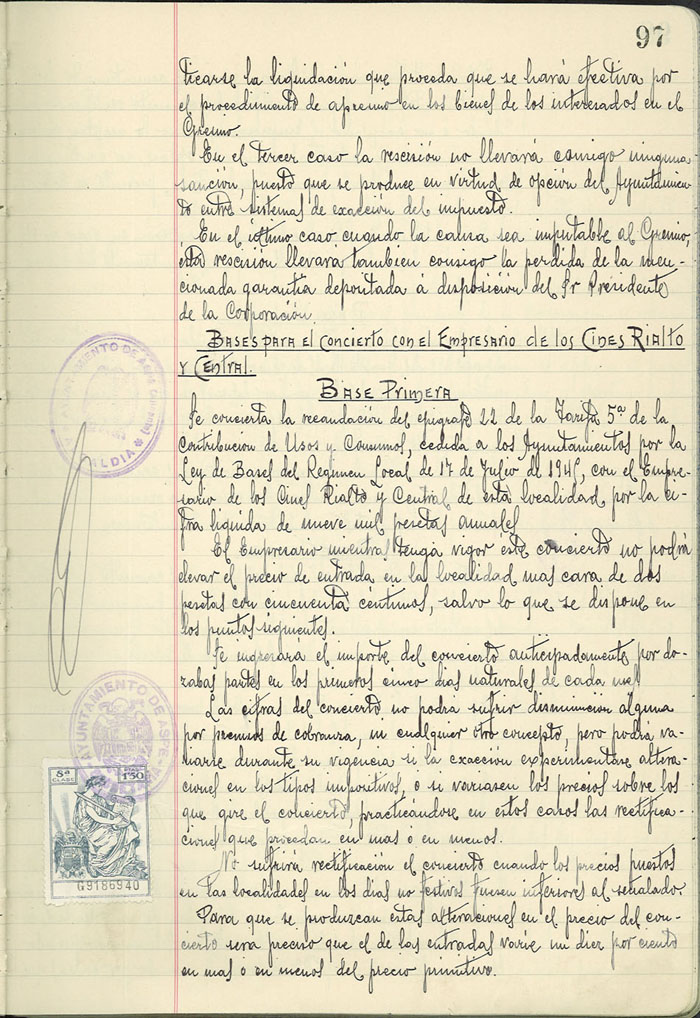 97
ticarse la liquidación que proceda que se hará efectiva por
el procedimiento de apremio en los bienes de los interesados en el
Gremio.
En el tercer caso la rescisión no llevará consigo ninguna
sanción, puesto que se produce en virtud de opción del Ayuntamien-
to entre sistemas de exacción del impuesto.
En el último caso cuando la causa sea imputable al Gremio,
esta rescisión llevara tambien consigo la perdida de la men-
cionada garantia depositada á disposición del Sr Presidente
de la Corporación
Bases para el concierto con el Empresario de los Cines Rialto
y Central.
Base Primera
Se concierta la recaudación del epigrafe 22 de la Tarifa 5ª de la
Contribucion de Usos y Consumos, cedida a los Ayuntamientos por la
Ley de Bases del Regimen Local de 17 de Julio de 1945, con el Empre-
sario de los Cines Rialto y Central de esta localidad por la ci-
fra liquida de nueve mil pesetas anuales
El Empresario mientras tenga vigor éste concierto no podrá
elevar el precio de entrada en la localidad mas cara de dos
pesetas con cincuenta céntimos, salvo lo que se dispone en
los puntos siguientes.
Se ingresará el importe del concierto anticipadamente por do-
zabas partes en los primeros cinco dias naturales de cada mes
Las cifras del concierto no podra sufrir disminución alguna
por premios de cobranza, ni cualquier otro concepto, pero podrá va-
riarse durante su vigencia si la exacción experimentare altera-
ciones en los tipos impositivos, o si variasen los precios sobre los
que gire el concierto, practicándose en estos casos las rectifica-
ciones que procedan en mas ó en menos.
No sufrira rectificación el concierto cuando los precios puestos
en las localidades en los dias no festivos fuesen inferiores al señalado
Para que se produzcan estas alteraciones en el precio del con-
cierto sera preciso que el de las entradas varie un diez por ciento
en mas ó en menos del precio primitivo.
AYUNTAMIENTO DE ASPE
ALCALDIA
AYUNTAMIENTO DE ASPE
8ª CLASE
1'50
G9186940